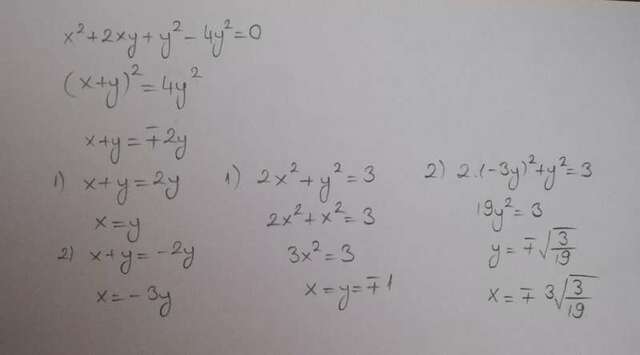 x²+2xy+y²-4y²=0
(x+y)²=4y²
x+y=∓2y
1) x+y=2y
x=y
2) x+y=-2y
x=-3y
1) 2x²+y²=3
2x²+x²=3
3x²=3
x=y=∓1
2) 2.(-3y)²+y²=3
19y²=3
y=∓√(3/19)
x=∓3√(3/19)